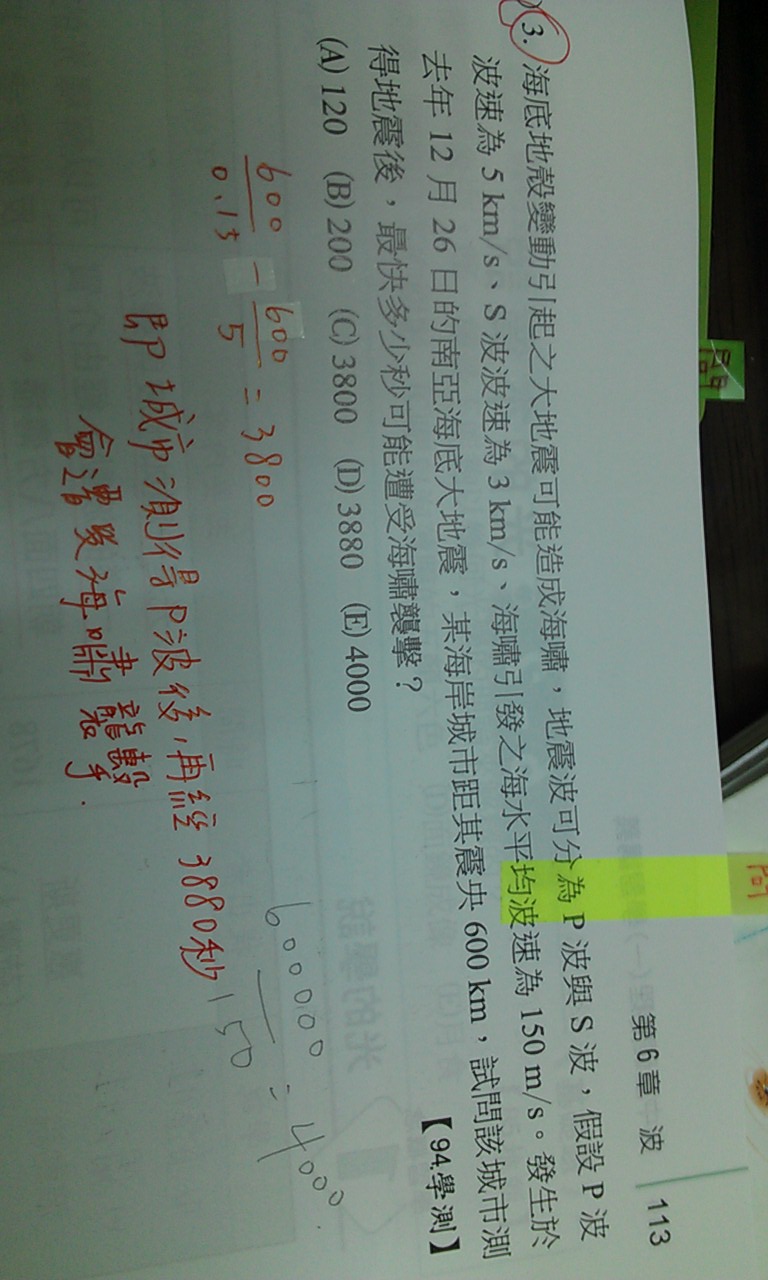 第6章 波 113
3. 海底地殼變動引起之大地震可能造成海嘯，地震波可分為 P 波與 S 波，假設 P 波
波速為 5 km/s、S 波波速為 3 km/s、海嘯引發之海水平均波速為 150 m/s。發生於
去年 12 月 26 日的南亞海底大地震，某海岸城市距其震央 600 km，試問該城市測
得地震後，最快多少秒可能遭受海嘯襲擊？ 【94.學測】
(A) 120 (B) 200 (C) 3800 (D) 3880 (E) 4000
600/0.15 - 600/5 = 3800
600000/150 = 4000
即城市測得P波後,再經3880秒
會遭受海嘯襲擊.
問
問